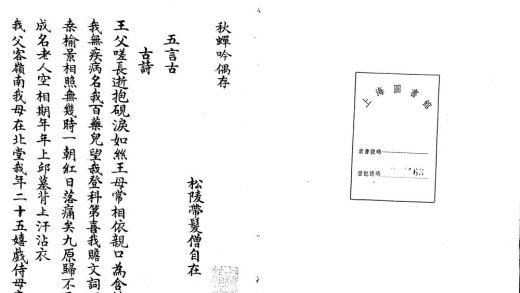 秋蟬吟偶存
松陵帶髮僧自在
五言古
古詩
王父嗟長逝抱硯淚如絲王母常相依親口為含
我無疾病名我百藥兒望我登科第喜我贍文詞
桑榆景相照無幾時一朝紅日落痛矣九原歸不
成名老人空相期年年上邱墓背上汗沾衣
我父客嶺南我母在北堂我年二十五嬉戲侍母
上海圖書館
索書號碼
登記號碼